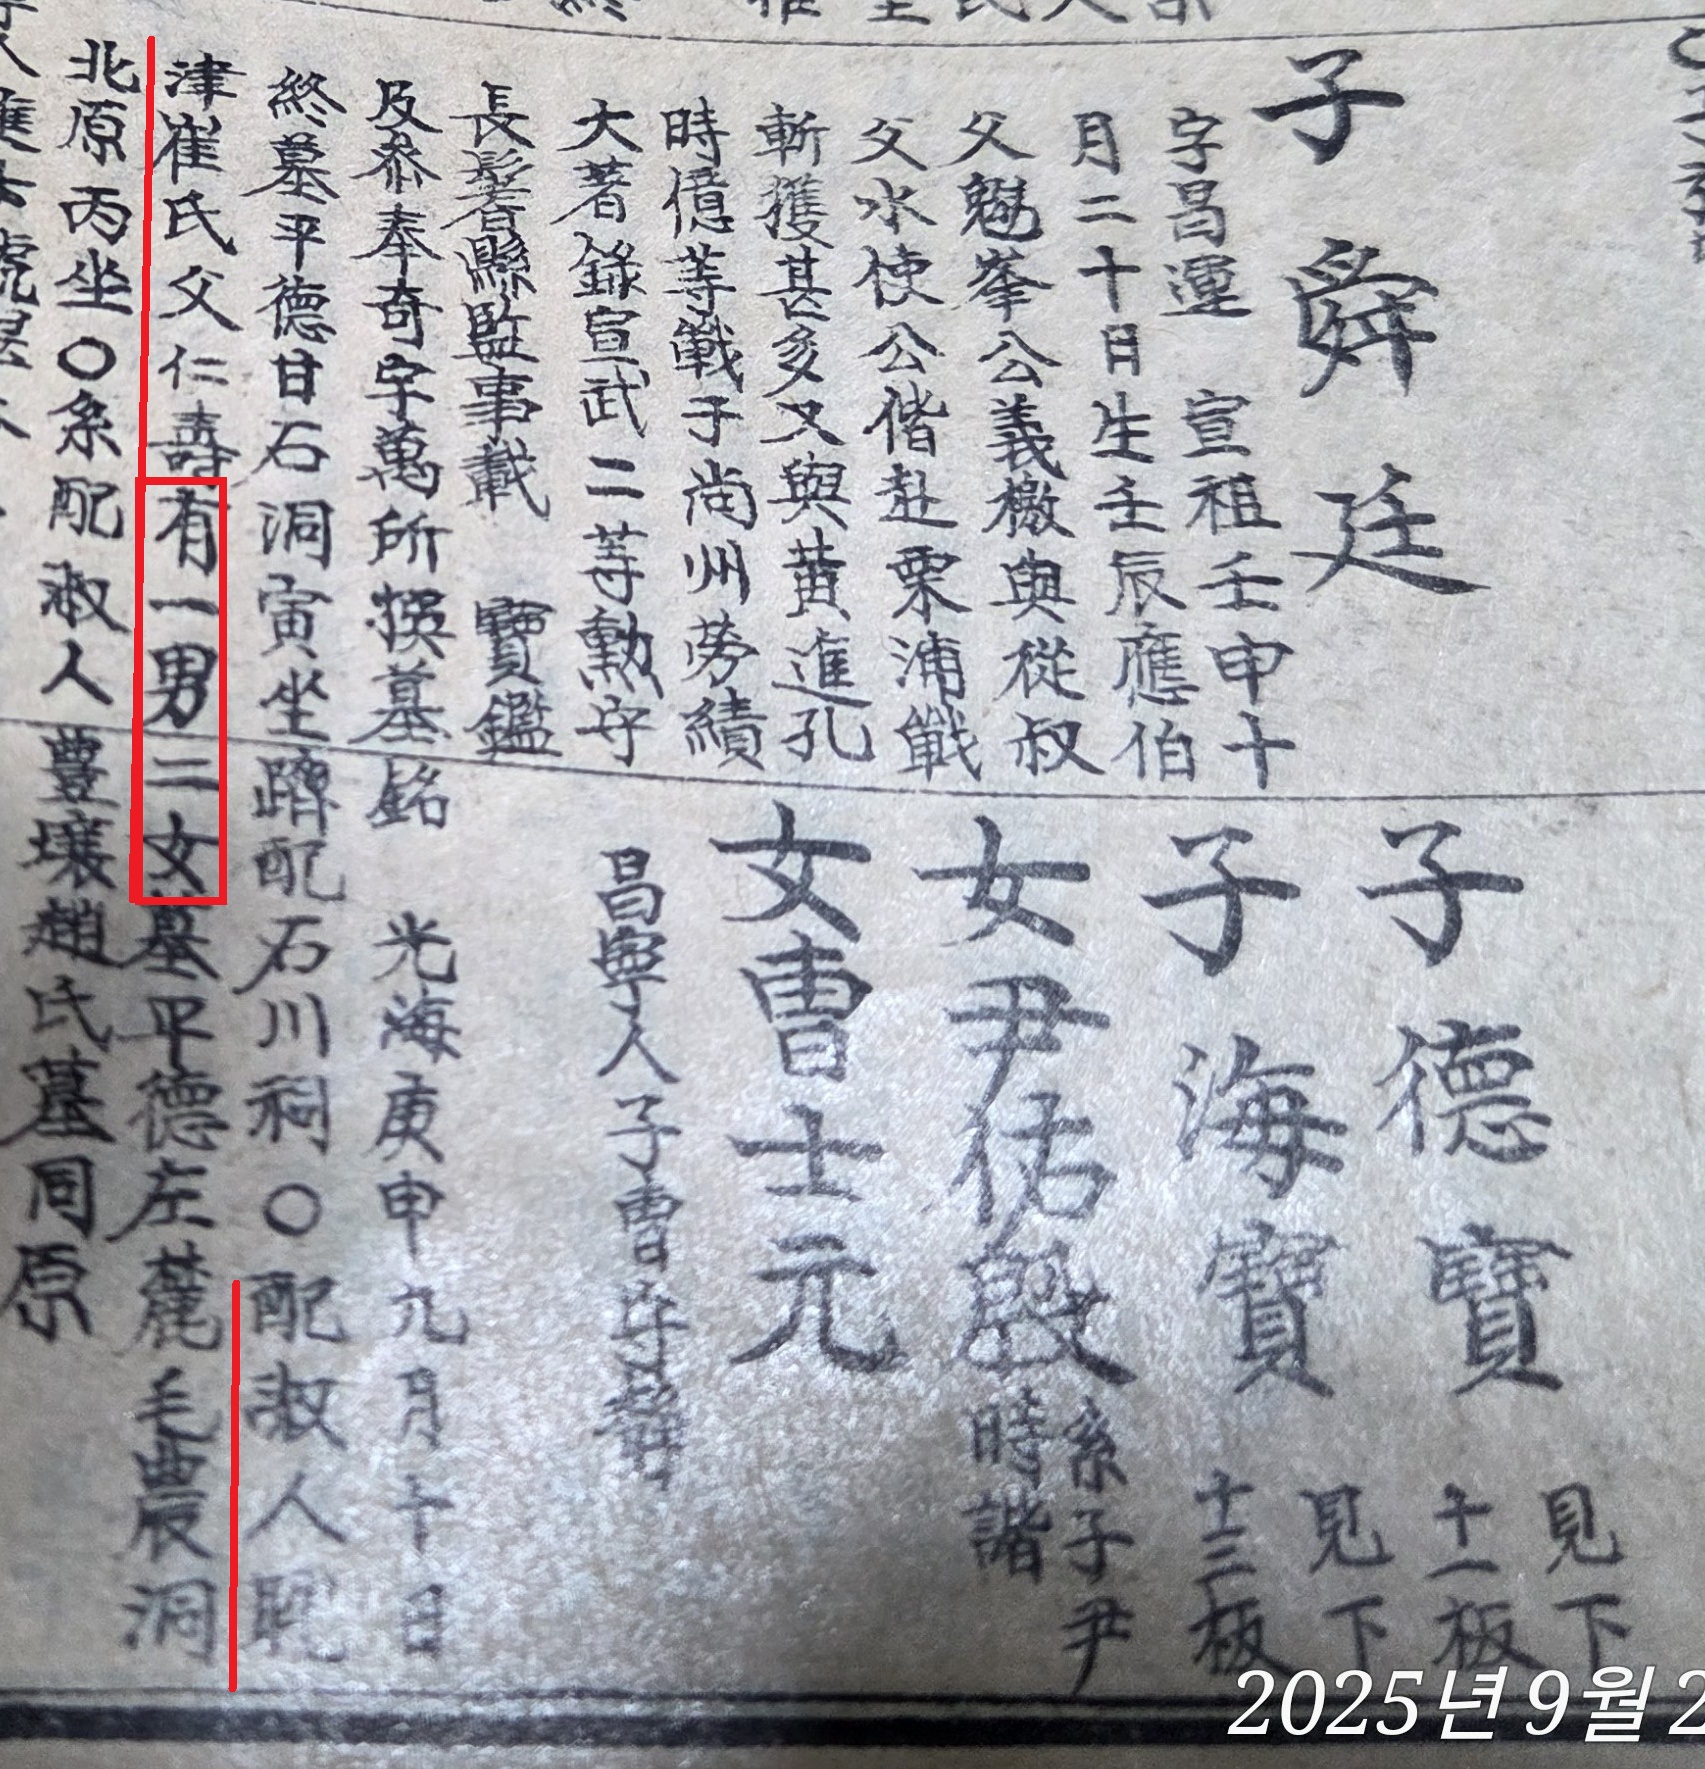 子舜廷
字昌運 宣祖壬申十
月二十日生壬辰應伯
父魁峯公義檄與從叔
父水使公偕赴栗浦戰
斬獲甚多又與黃進孔
時億等戰于尚州勞績
大著錄宣武二等勳守
長鬐縣監事載 寶鑑
及泰奉奇字萬所撰墓銘 光海庚申九月十日
終墓平德甘石洞寅坐躋配石川祠○配淑人耽
津崔氏父仁壽有一男二女墓平德左麓毛農洞
北原丙坐○系配淑人豊壤趙氏墓同原
子德寶
見下
十一板
子海寶
見下
十三板
女尹佑殷
系子尹
時諧
女曺士元
昌寧人子曺
2025년 9월 2